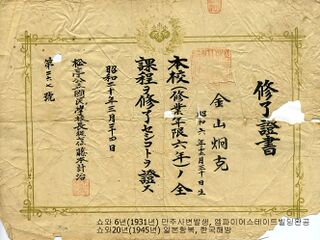 修了證書
金山炯克
昭和六年十二月三十日生
本校(修業年限六年)ノ全
課程ヲ修了セシコトヲ證ス
昭和二十年三月二十四日
公立國民學校長 藤本計治
第 號
쇼와 6년(1931년) 만주사변발생, 엠파이어스테이트빌딩완공
쇼와20년(1945년) 일본항복, 한국해방